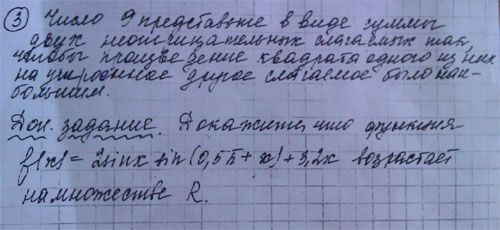 ③ Число 9 представьте в виде суммы
двух неотрицательных слагаемых так,
чтобы произведение квадрата одного из них
на утроенное другое слагаемое было наи-
большим.
Доп. задание. Докажите, что функция
f(x) = 2sinx sin(0,5π + x) + 3,2x возрастает
на множестве R.